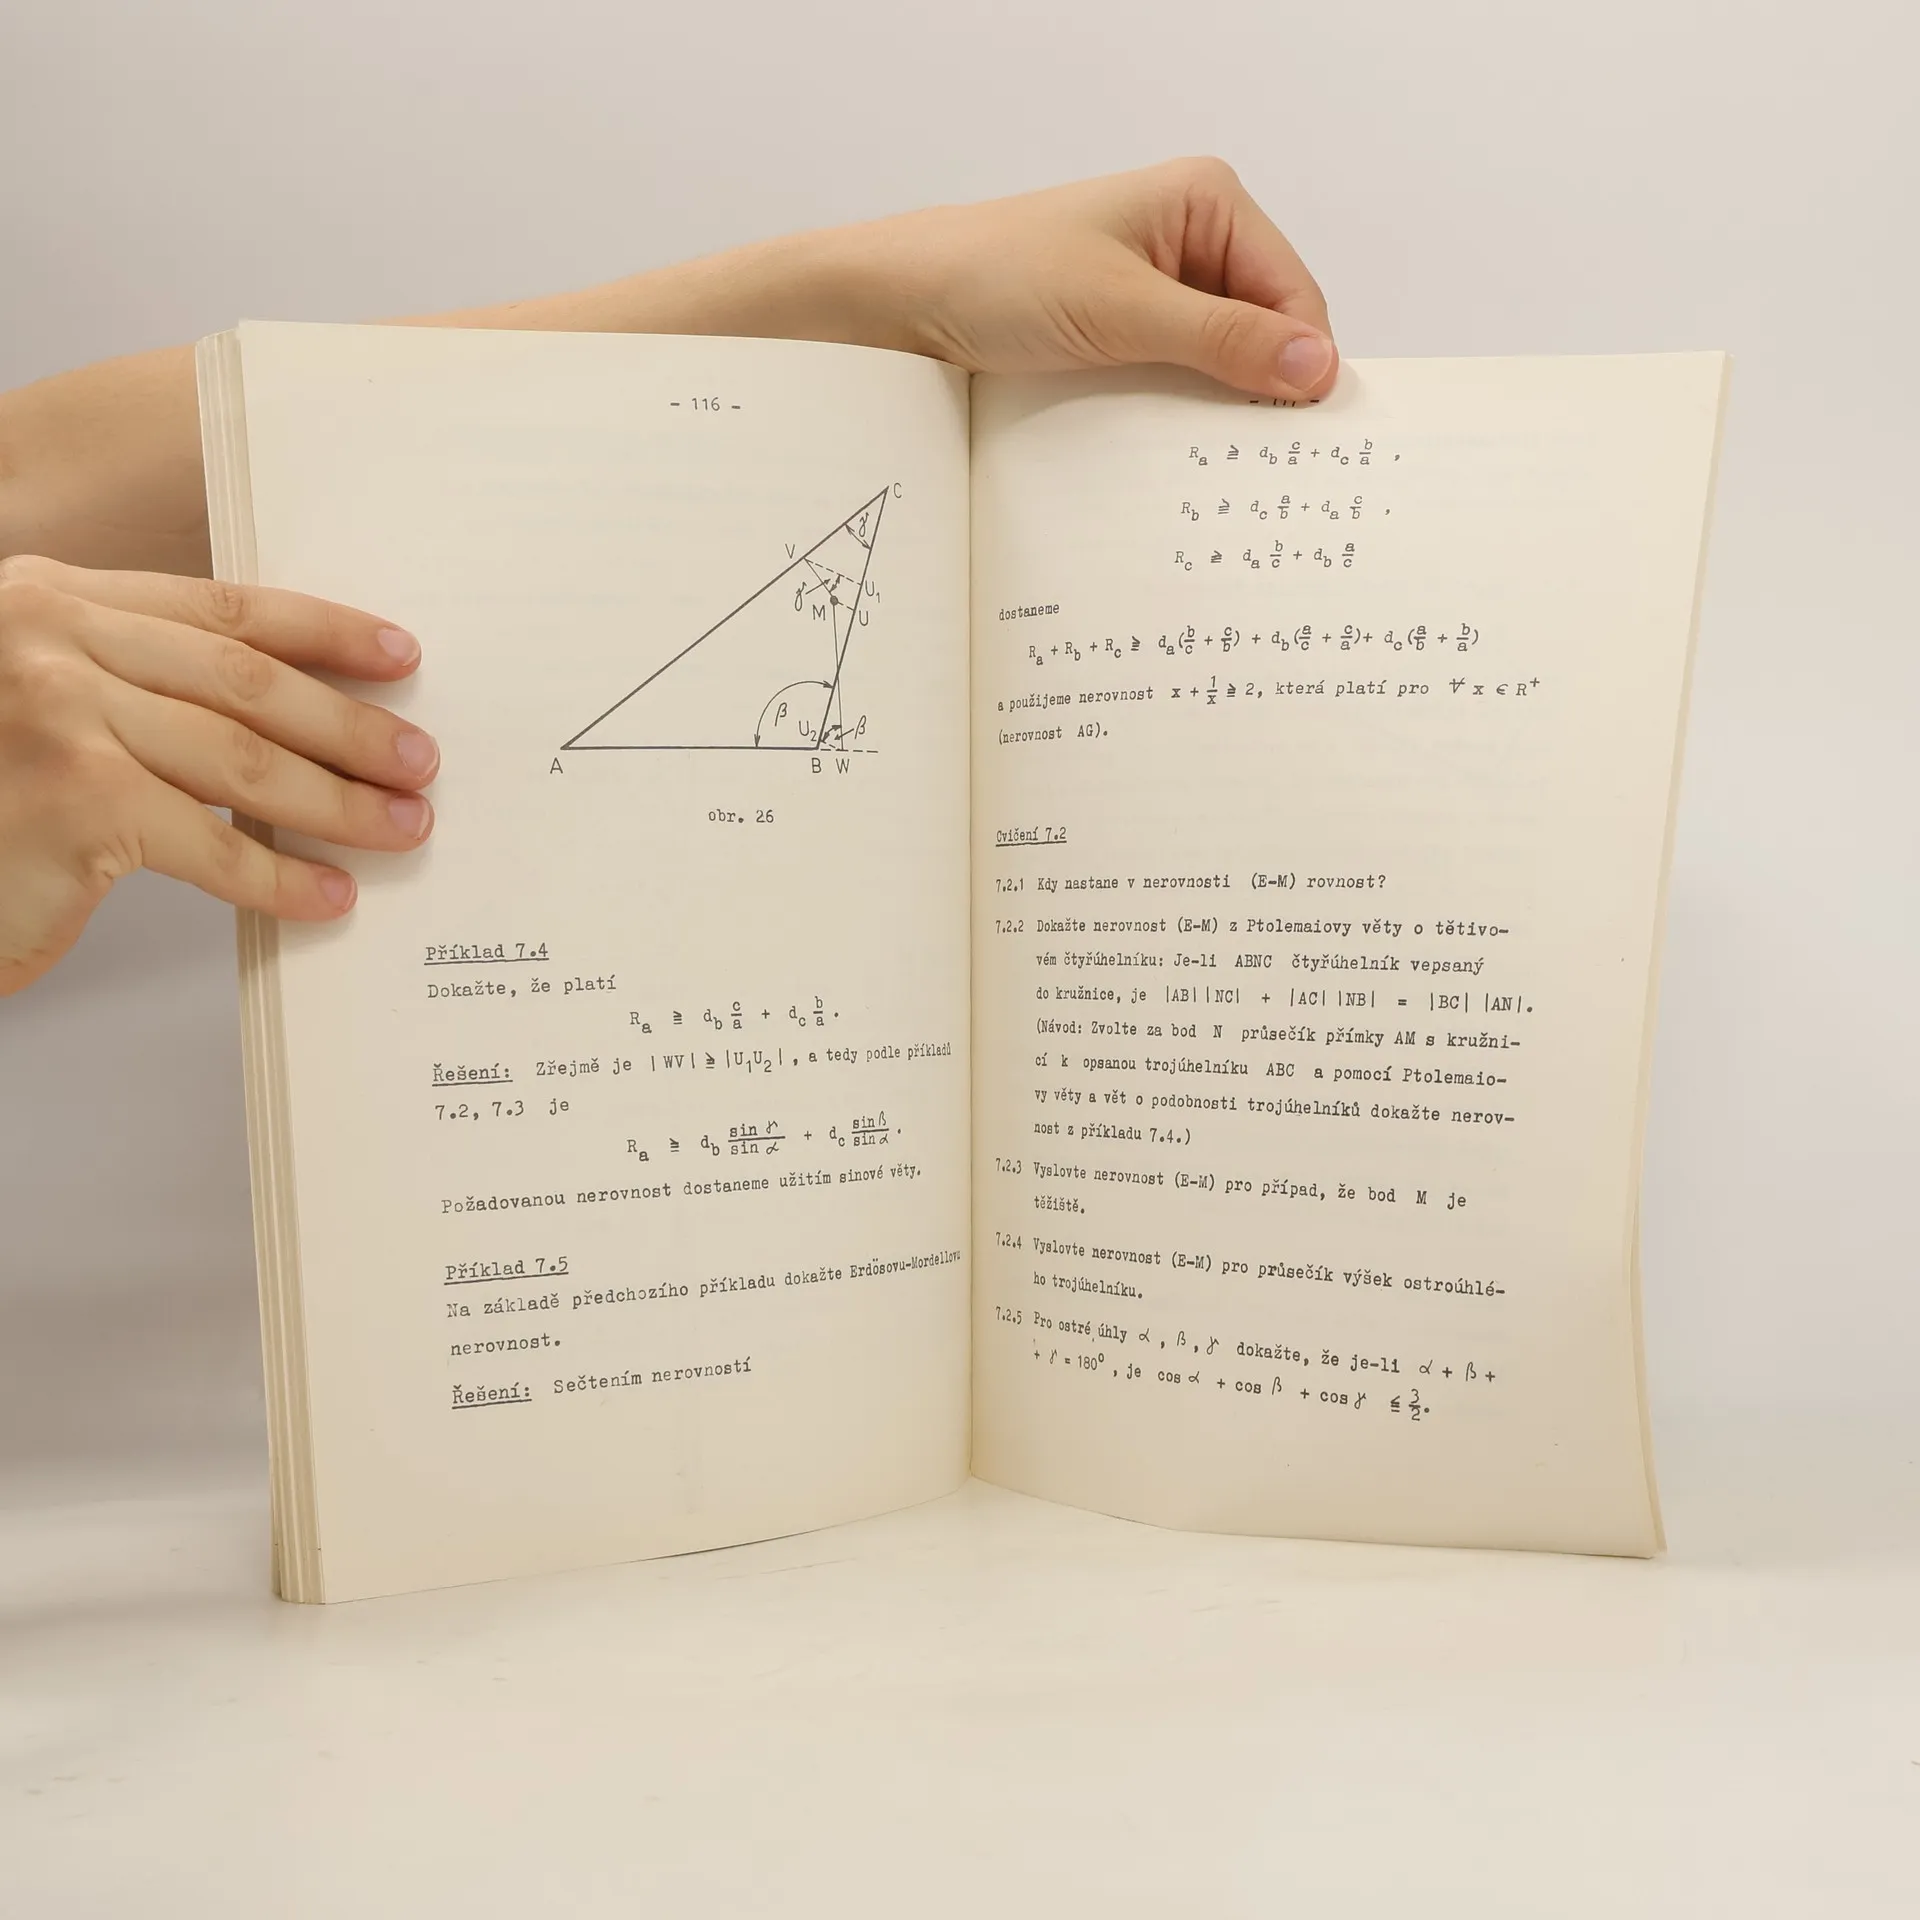 - 116 -
C
γ
V
γ
U₁
M
U
β
U₂
β
A
B W
obr. 26
Příklad 7.4
Dokažte, že platí
R_a ≧ d_b c/a + d_c b/a .
Řešení: Zřejmě je |WV| ≧ |U₁U₂| , a tedy podle příkladů
7.2, 7.3 je
R_a ≧ d_b sin γ/sin α + d_c sin β/sin α .
Požadovanou nerovnost dostaneme užitím sinové věty.
Příklad 7.5
Na základě předchozího příkladu dokažte Erdösovu-Mordellovu
nerovnost.
Řešení: Sečtením nerovností
R_a ≧ d_b c/a + d_c b/a ,
R_b ≧ d_c a/b + d_a c/b ,
R_c ≧ d_a b/c + d_b a/c
dostaneme
R_a + R_b + R_c ≧ d_a(b/c + c/b) + d_b(a/c + c/a)+ d_c(a/b + b/a)
a použijeme nerovnost x + 1/x ≧ 2, která platí pro ∀ x ∈ R⁺
(nerovnost AG).
Cvičení 7.2
7.2.1 Kdy nastane v nerovnosti (E-M) rovnost?
7.2.2 Dokažte nerovnost (E-M) z Ptolemaiovy věty o tětivo-
vém čtyřúhelníku: Je-li ABNC čtyřúhelník vepsaný
do kružnice, je |AB||NC| + |AC||NB| = |BC||AN|.
(Návod: Zvolte za bod N průsečík přímky AM s kružni-
cí k opsanou trojúhelníku ABC a pomocí Ptolemaio-
vy věty a vět o podobnosti trojúhelníků dokažte nerov-
nost z příkladu 7.4.)
7.2.3 Vyslovte nerovnost (E-M) pro případ, že bod M je
těžiště.
7.2.4 Vyslovte nerovnost (E-M) pro průsečík výšek ostroúhlé-
ho trojúhelníku.
7.2.5 Pro ostré úhly α , β , γ dokažte, že je-li α + β +
+ γ = 180° , je cos α + cos β + cos γ ≦ 3/2.